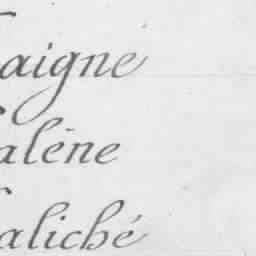 aigne
alène
aliché